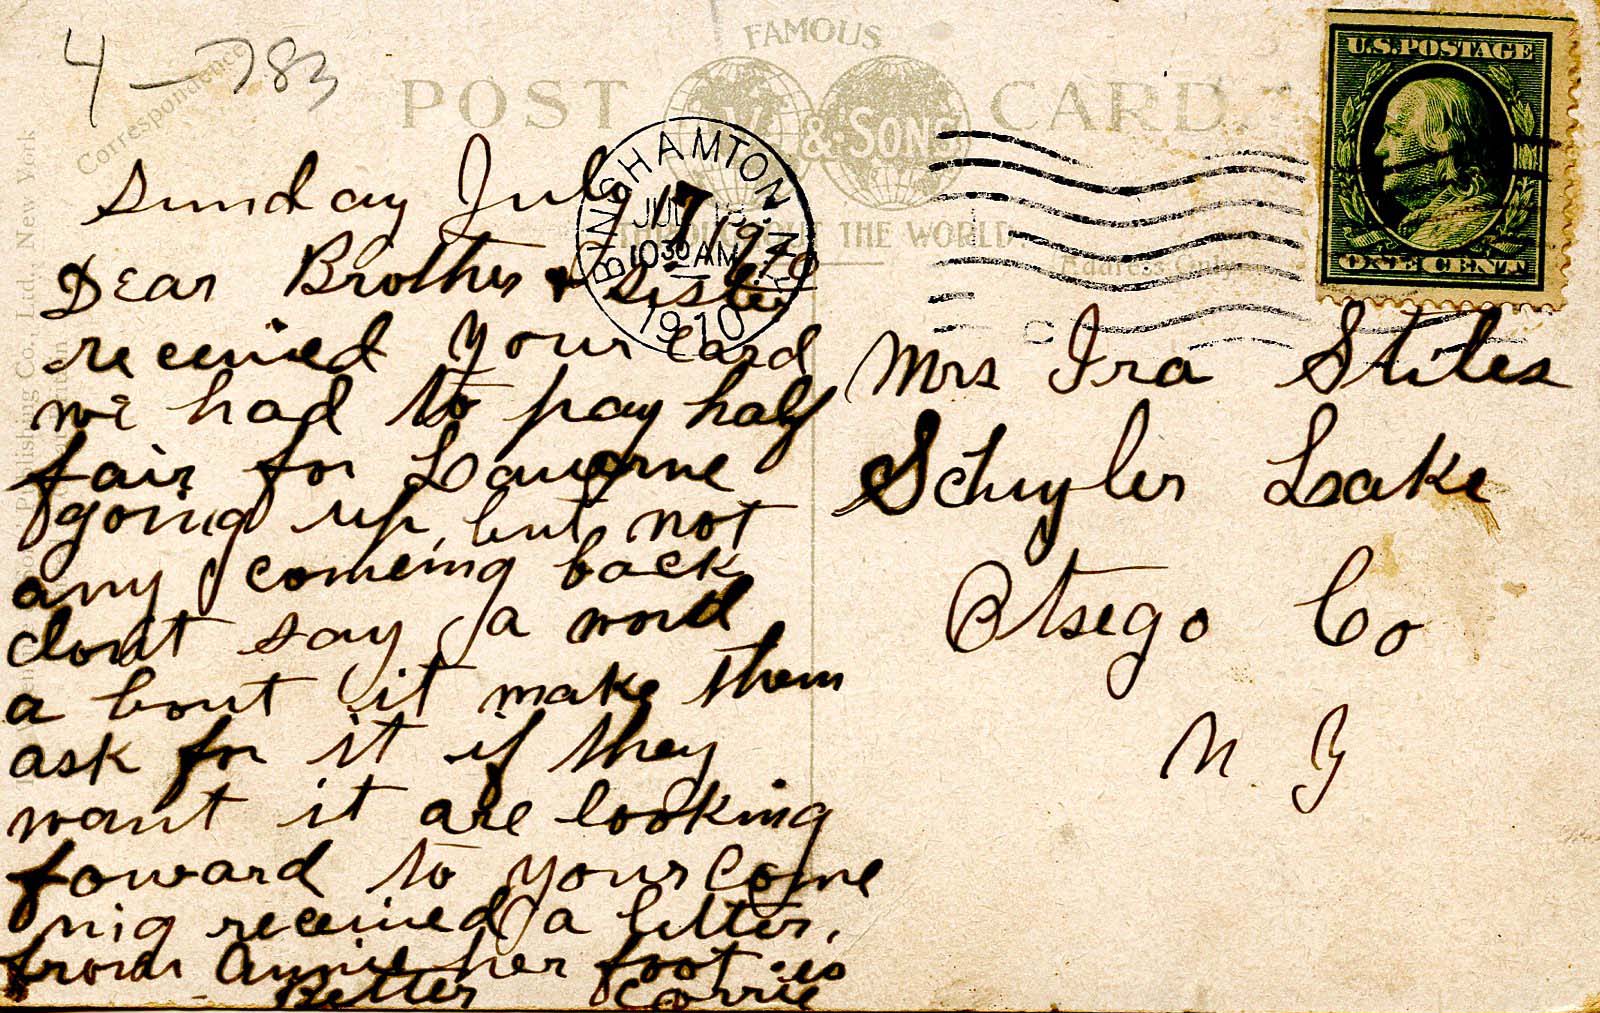 4-783
Correspondence
FAMOUS
POST CARD
& SONS
THE WORLD
Address Only
U.S. POSTAGE
ONE CENT
BINGHAMTON
JUL
10 30 AM
N.Y.
1910
Sunday July 17 1910
Dear Brother & sister
received your card
we had to pay half
fair for Laverne
going up, but not
any comeing back
dont say a word
a bout it make them
ask for it if they
want it are looking
foward to your come
nig received a letter,
from Annie her foot is
Better Corrie
Mrs Ira Stiles
Schuyler Lake
Otsego Co
N. Y
Publishing Co., Ltd., New York